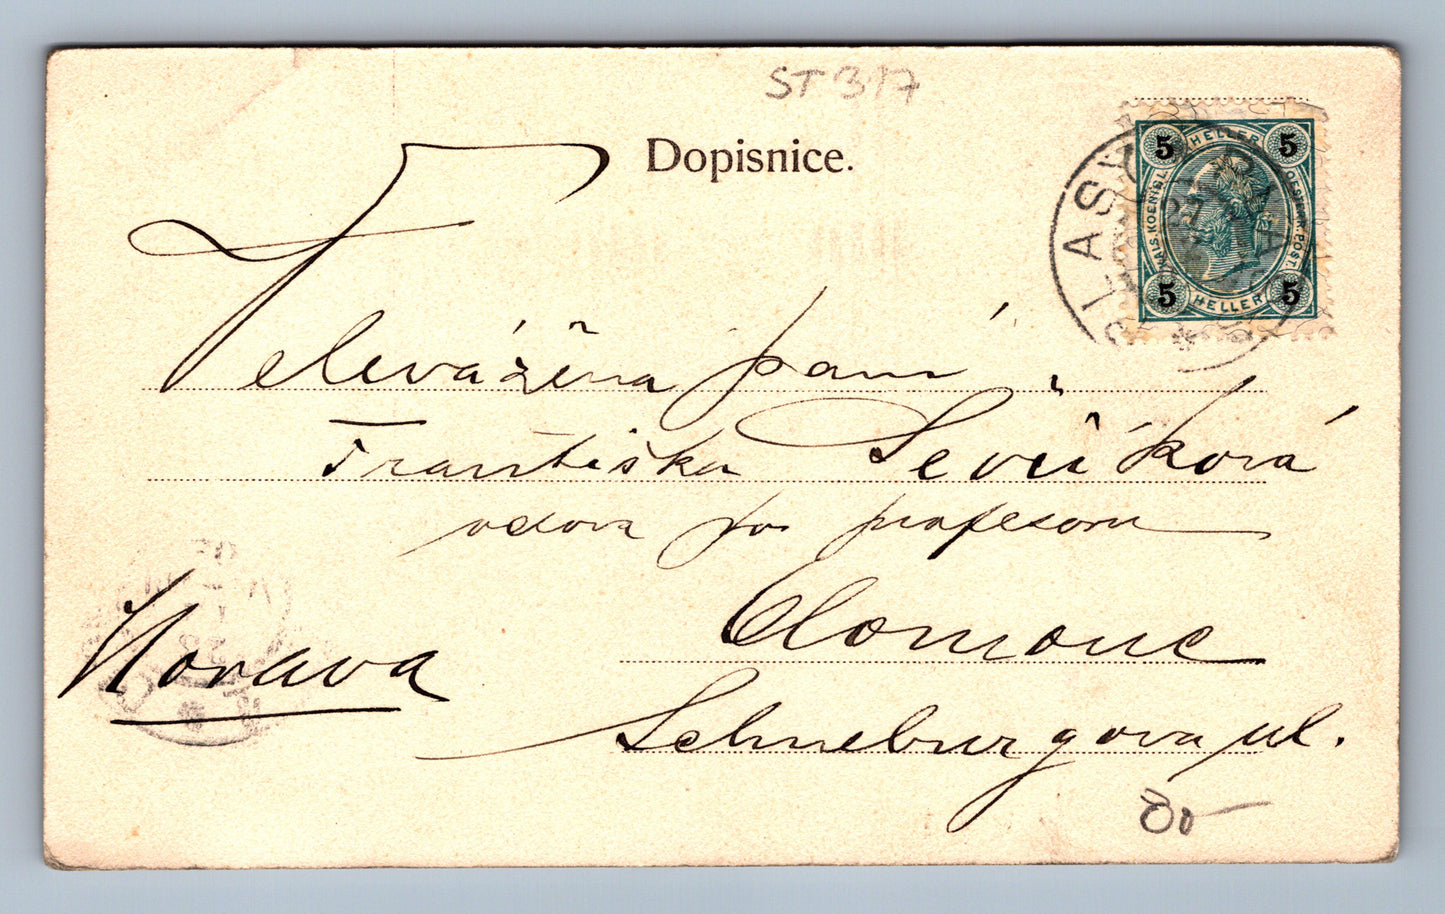 ST 317
Dopisnice.
5 HELLER 5
KAIS. KOENIGL. OESTERR. POST.
5 HELLER 5
PLASY
Velevážená paní
Františka Ševčíková
vdova po professoru
Olomouc
Morava
Schneeburgova ul.
80